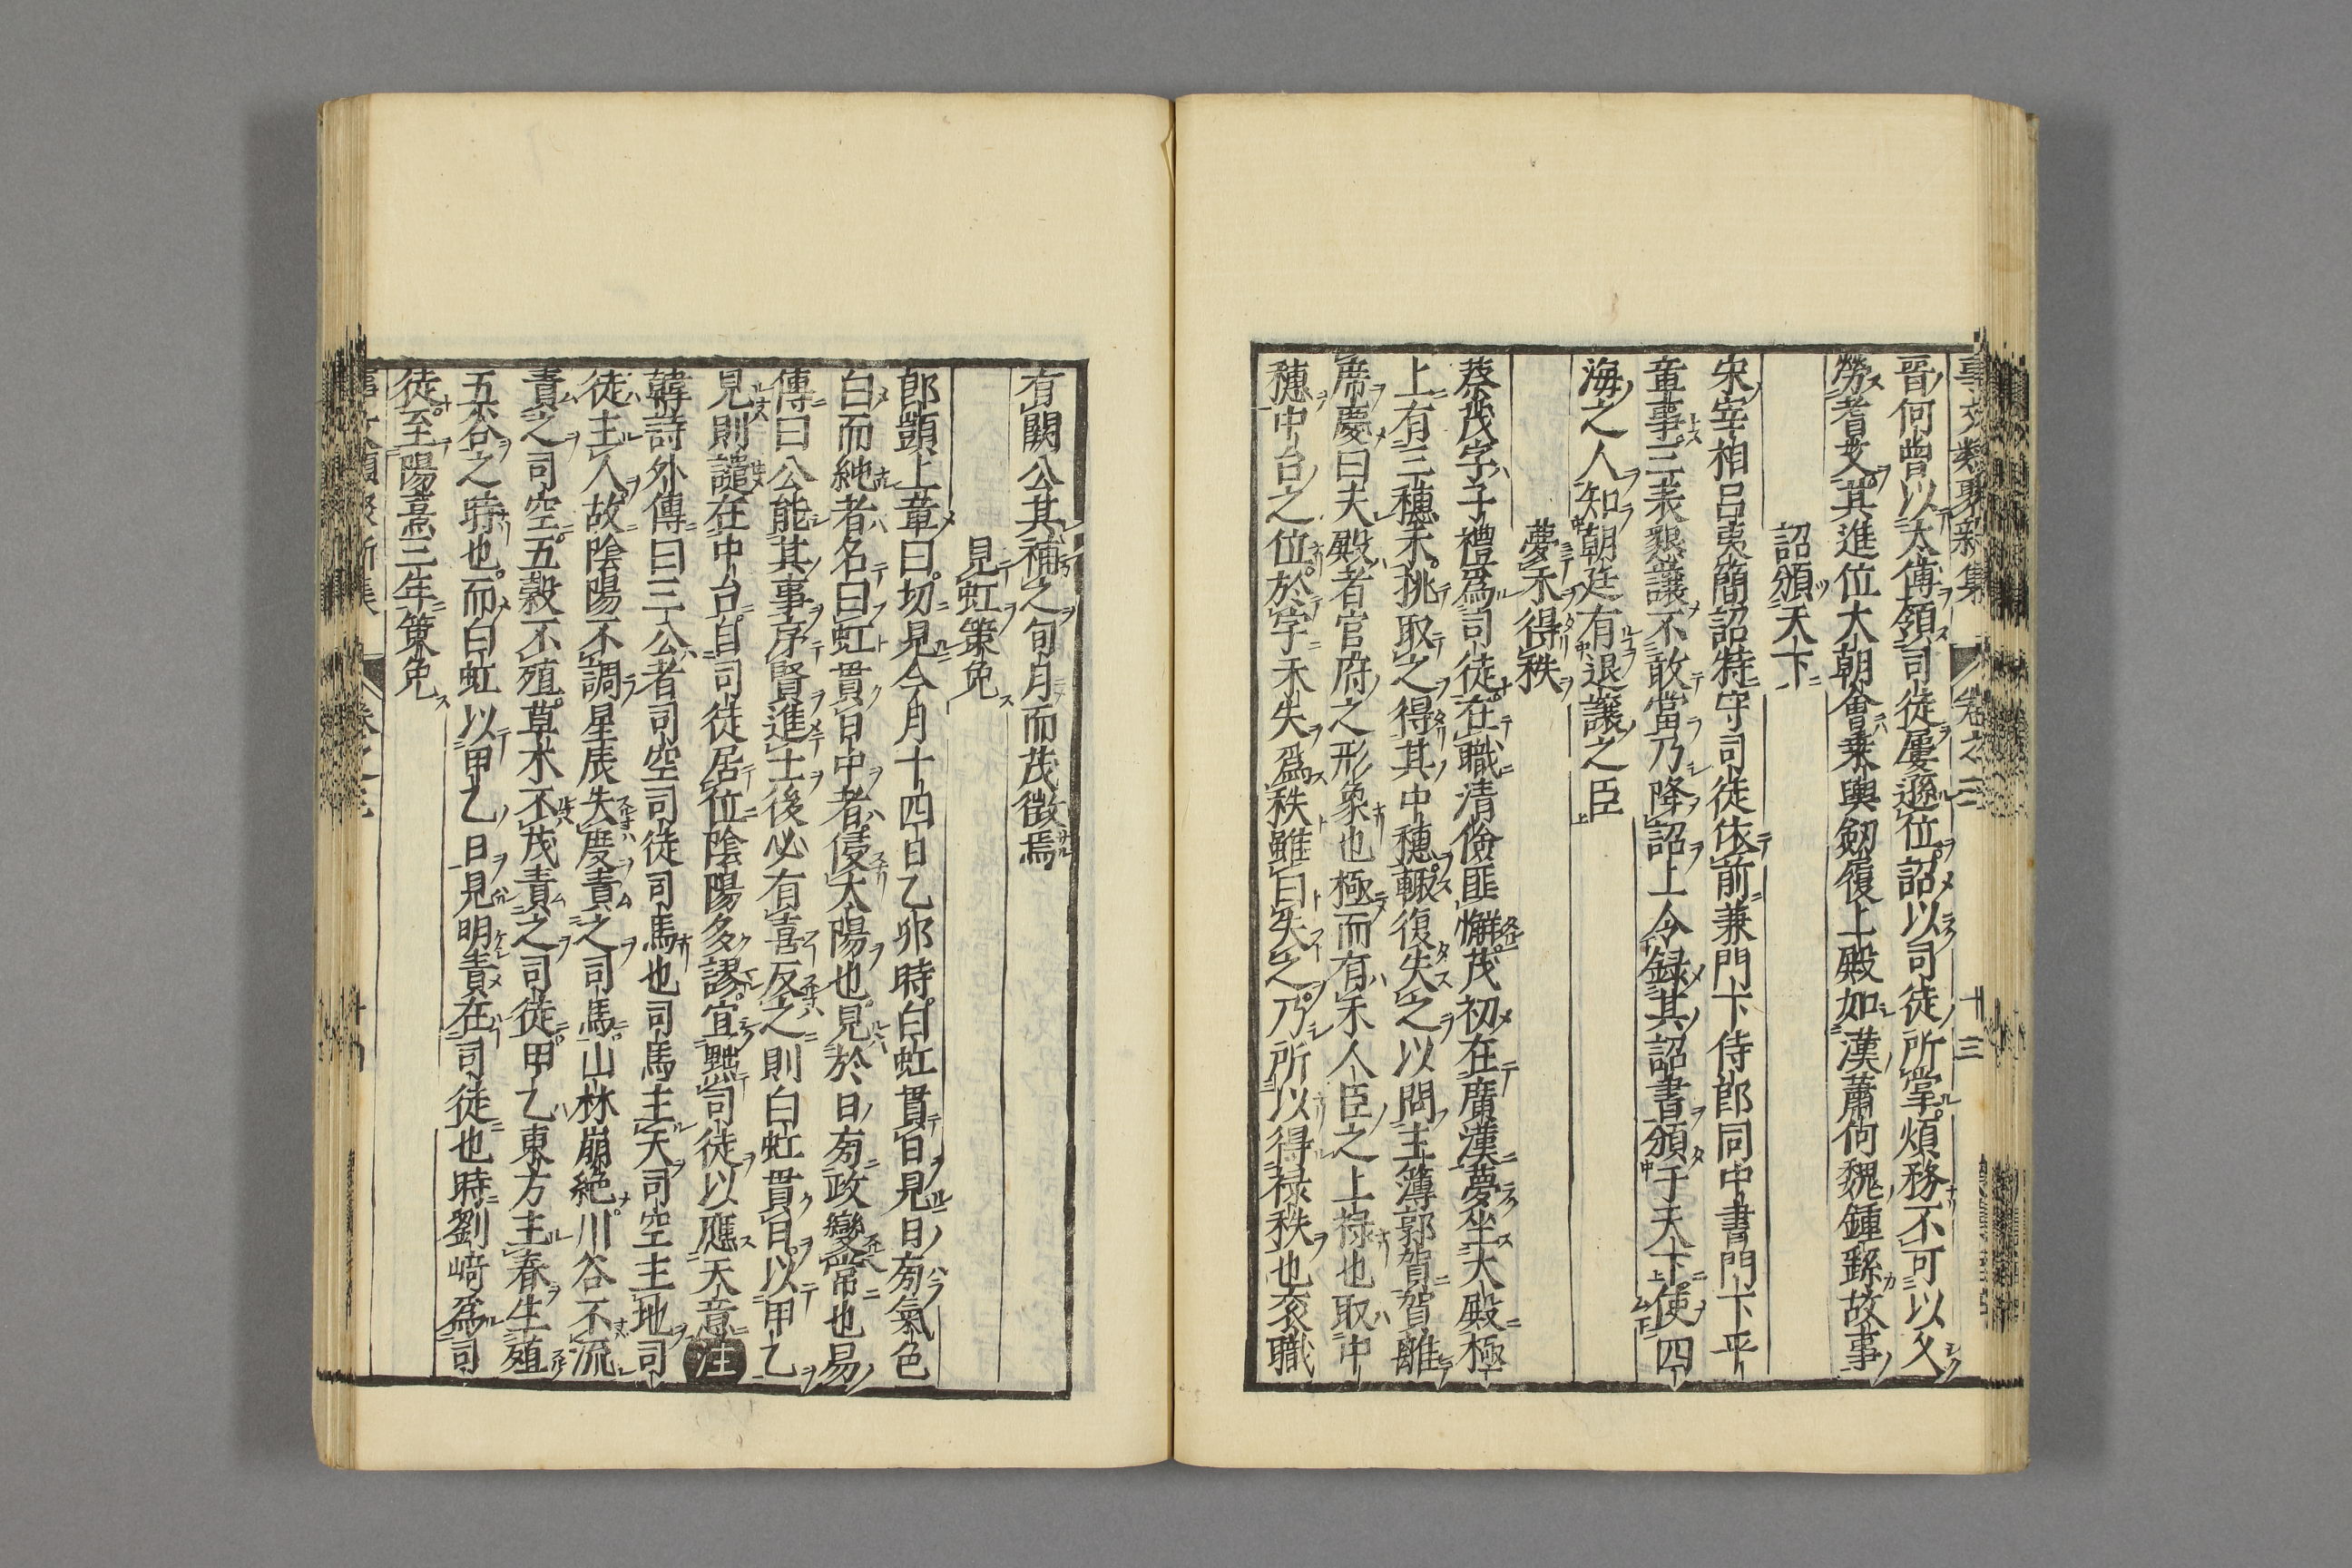 事文類聚新集 卷之三 十三
晉何曾以太傅領司徒屢遜位詔以司徒所掌煩務不可以久
勞耆艾其進位大朝會乗輿劔履上殿如漢蕭何魏鍾繇故事
詔頒天下
宋宰相呂夷簡詔特守司徒依前兼門下侍郎同中書門下平
童事三表懇讓不敢當乃降詔上令録其詔書頒于天下使四
海之人知朝廷有退讓之臣
夢禾得秩
蔡茂字子禮爲司徒在職清儉匪懈茂初在廣漢夢坐大殿極
上有三穗禾挑取之得其中穗輙復失之以問主簿郭賀賀離
席慶曰夫殿者官府之形象也極而有禾人臣之上祿也取中
穗中台之位於字禾失爲秩雖曰失之乃所以得祿秩也衮職
有闕公其補之旬月而茂徵焉
見虹策免
郎顗上章曰切見今月十四日乙卯時白虹貫日見日旁氣色
白而純者名曰虹貫日中者侵太陽也見於日旁政變常也易
傳曰公能其事序賢進士後必有喜反之則白虹貫日以甲乙
見則譴在中台自司徒居位陰陽多謬宜黜司徒以應天意注
韓詩外傳曰三公者司空司徒司馬也司馬主天司空主地司
徒主人故陰陽不調星辰失度責之司馬山林崩絶川谷不流
責之司空五穀不殖草木不茂責之司徒甲乙東方主春生殖
五谷之時也而白虹以甲乙日見明責在司徒也時劉﨑爲司
徒至陽嘉三年策免
卷之三